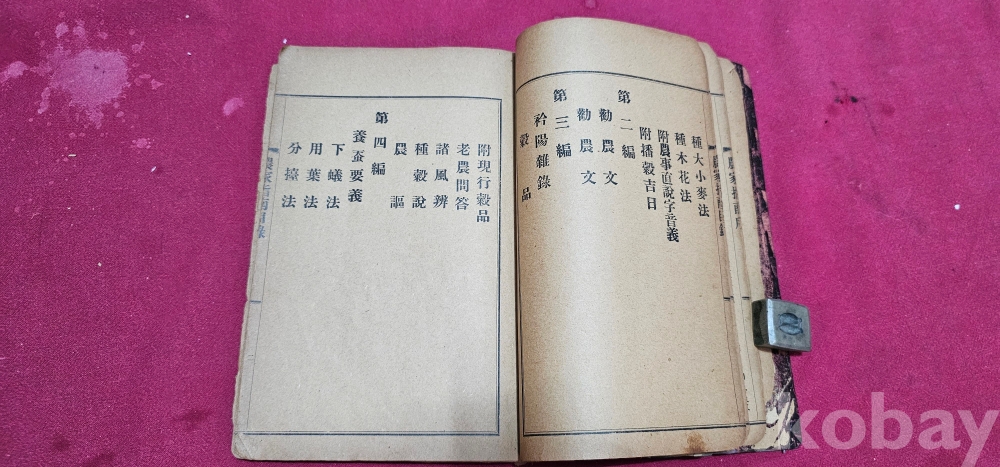 種大小麥法
種木花法
附農事直說字音義
附播穀吉日
第二編
勸農文
勸農文
第三編
衿陽雜錄
穀品
附現行穀品
老農問答
諸風辨
種穀說
農謳
第四編
養蚕要義
下蟻法
用葉法
分擡法
kobay